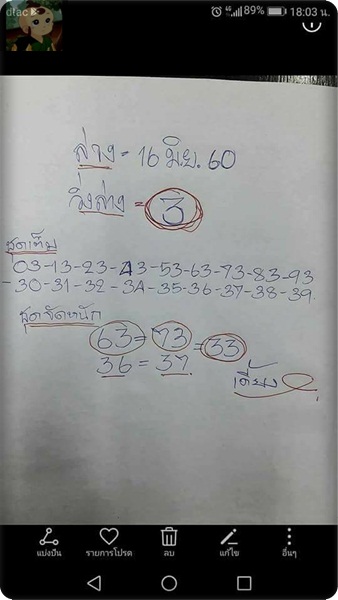 dtac 4G 89% 18:03 น.
ล่าง = 16 มิ.ย. 60
วิ่งล่าง = 3
ชุดเต็ม
03-13-23-43-53-63-73-83-93
-30-31-32-34-35-36-37-38-39.
ชุดจัดหนัก
63 = 73 = 33
36 = 37
แบ่งปัน รายการโปรด ลบ แก้ไข อื่นๆ